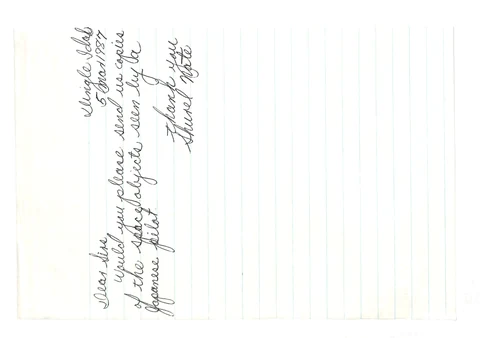 Dingle Idah
5 Mar 1987
Dear Sirs
Would you please send us copies
of the space objects seen by a
Japanese pilot.
Thank you
Nate